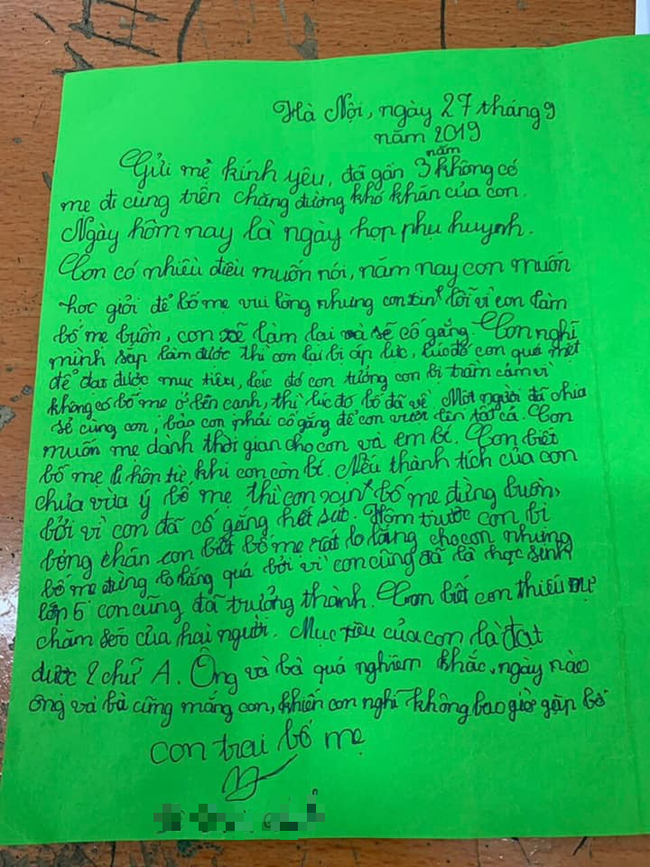 Hà Nội, ngày 27 tháng 9
năm 2019
Gửi mẹ kính yêu, đã gần 3 năm không có
mẹ đi cùng trên chặng đường khó khăn của con.
Ngày hôm nay là ngày họp phụ huynh.
Con có nhiều điều muốn nói, năm nay con muốn
học giỏi để bố mẹ vui lòng nhưng con xin lỗi vì con làm
bố mẹ buồn, con sẽ làm lại và sẽ cố gắng. Con nghĩ
mình sắp làm được thì con lại bị áp lực, lúc đó con quá mệt
để đạt được mục tiêu, lúc đó con tưởng con bị trầm cảm vì
không có bố mẹ ở bên cạnh, thì lúc đó bố đã về. Một người đã chia
sẻ cùng con, bảo con phải cố gắng để con vượt lên tất cả. Con
muốn mẹ dành thời gian cho con và em bé. Con biết
bố mẹ li hôn từ khi con còn bé. Nếu thành tích của con
chưa vừa ý bố mẹ thì con xin bố mẹ đừng buồn,
bởi vì con đã cố gắng hết sức. Hôm trước con bị
bỏng chân con biết bố mẹ rất lo lắng cho con nhưng
bố mẹ đừng lo lắng quá bởi vì con cũng đã là học sinh
lớp 5 con cũng đã trưởng thành. Con biết con thiếu sự
chăm sóc của hai người. Mục tiêu của con là đạt
được 2 chữ A. Ông và bà quá nghiêm khắc, ngày nào
ông và bà cũng mắng con, khiến con nghĩ không bao giờ gặp bố
con trai bố mẹ